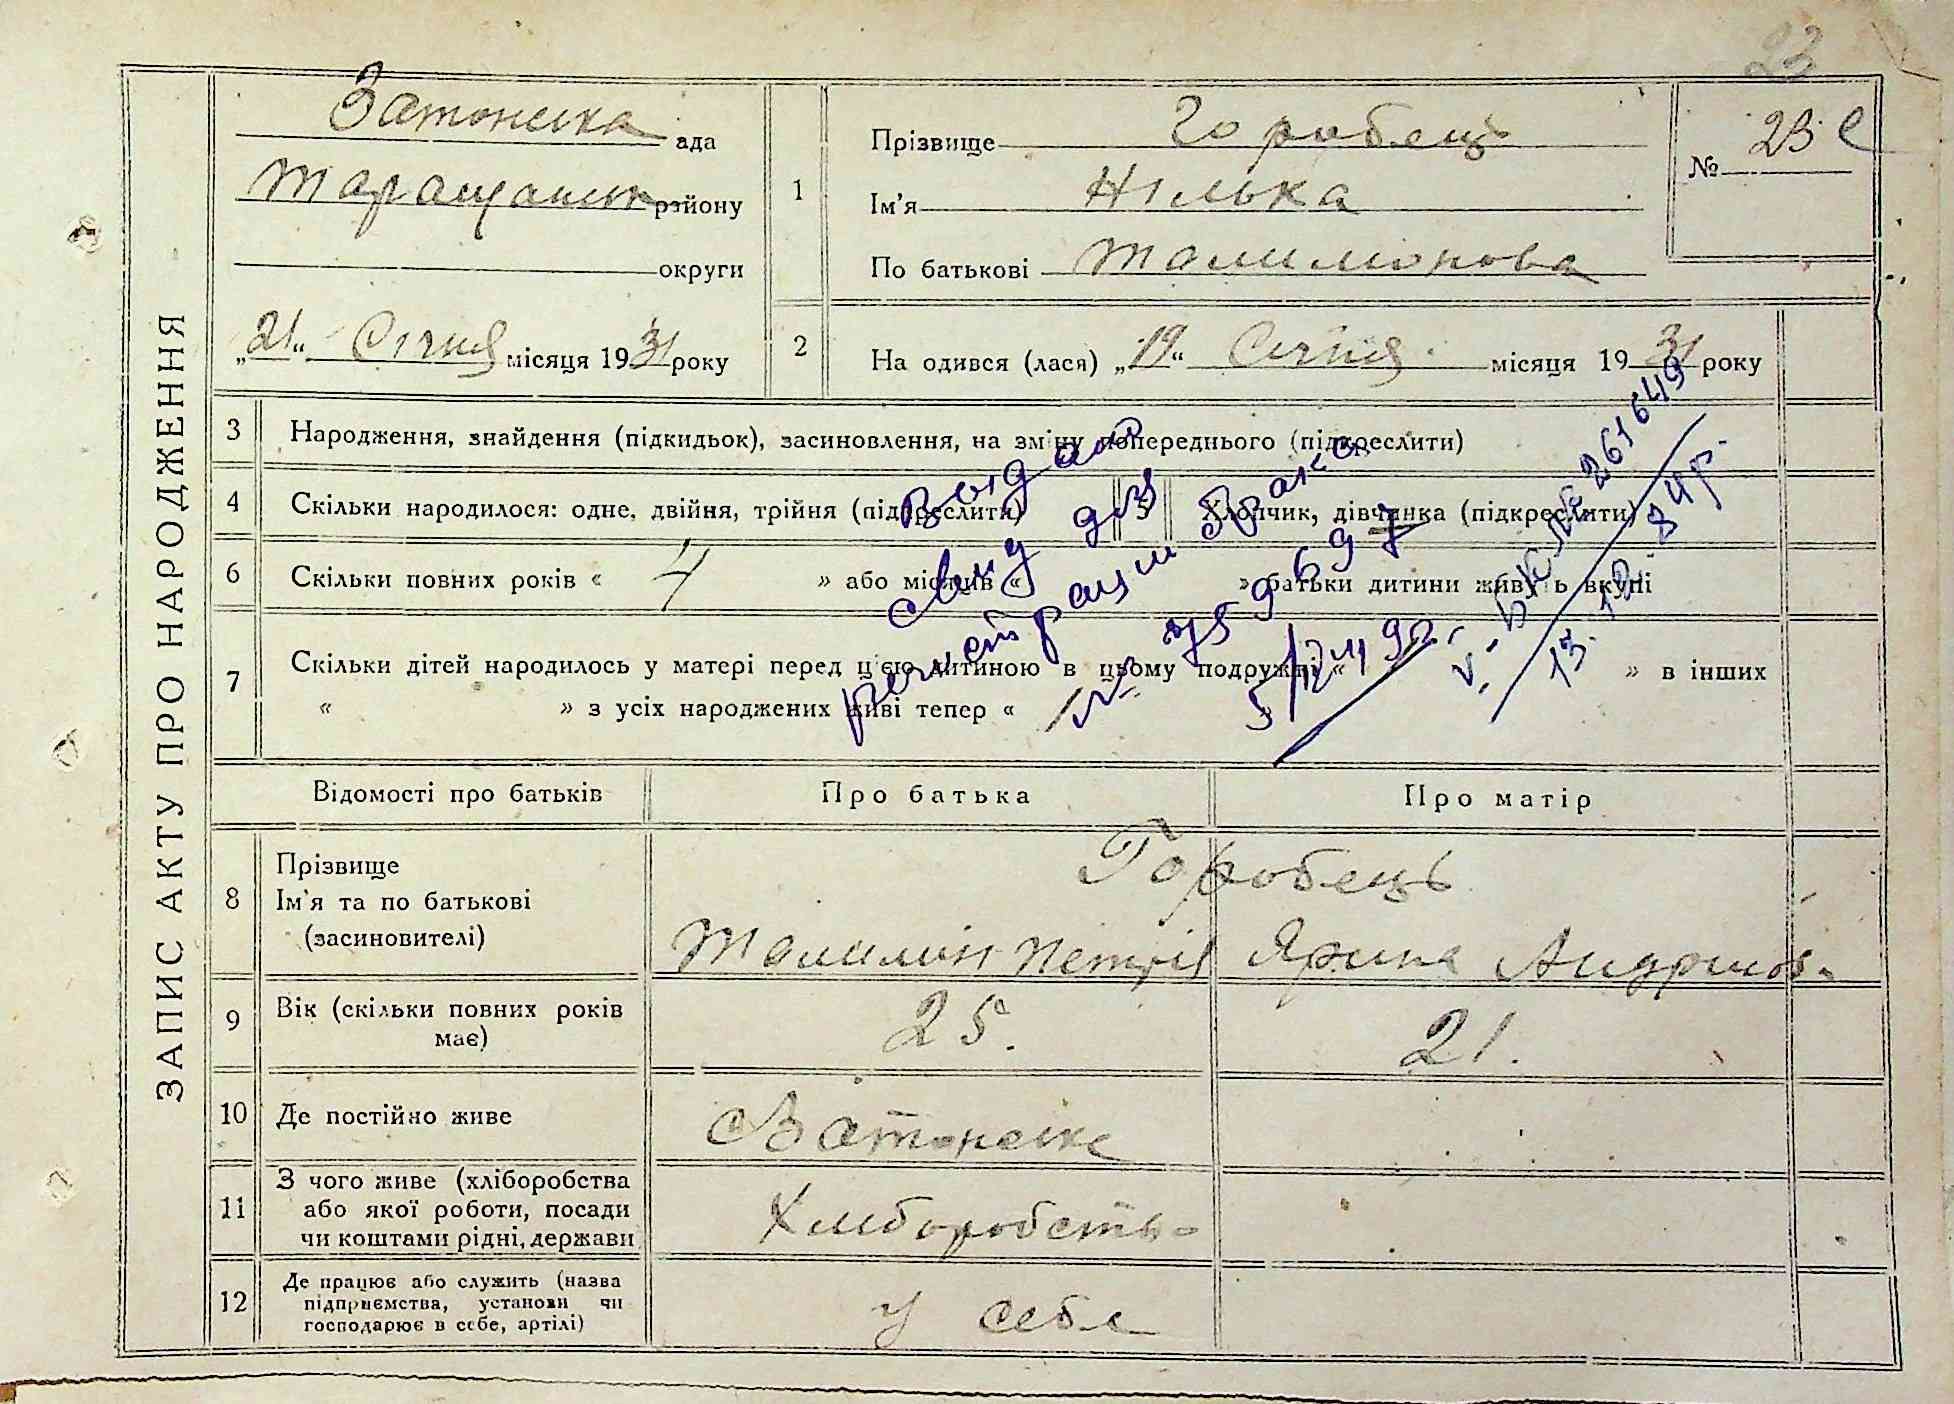 23
ЗАПИС АКТУ ПРО НАРОДЖЕННЯ
Затонська ада
Таращанськ району
округи
„21“ Січня місяця 1931 року
1
Прізвище Горобець
Ім'я Нілька
По батькові Талимонова
№ 23
2
На одився (лася) „19“ Січня місяця 1931 року
3
Народження, знайдення (підкидьок), засиновлення, на зміну попереднього (підкреслити)
4
Скільки народилося: одне, двійня, трійня (підкреслити)
5
Хлопчик, дівчинка (підкреслити)
6
Скільки повних років « 4 » або місяців « » батьки дитини живуть вкупі
7
Скільки дітей народилось у матері перед цією дитиною в цьому подружжі « » в інших
« » з усіх народжених живі тепер « »
Видано
свид для
регистрации брака
№
V-БК № 261649
13.12.84р.
Відомості про батьків
Про батька
Про матір
8
Прізвище
Ім'я та по батькові
(засиновителі)
Горобець
Талимон Петрів
Ярина Андриєв
9
Вік (скільки повних років
має)
25.
21.
10
Де постійно живе
Затонське
11
З чого живе (хліборобства
або якої роботи, посади
чи коштами рідні, держави
Хліборобств
12
Де працює або служить (назва
підприємства, установи чи
господарює в себе, артілі)
у себе